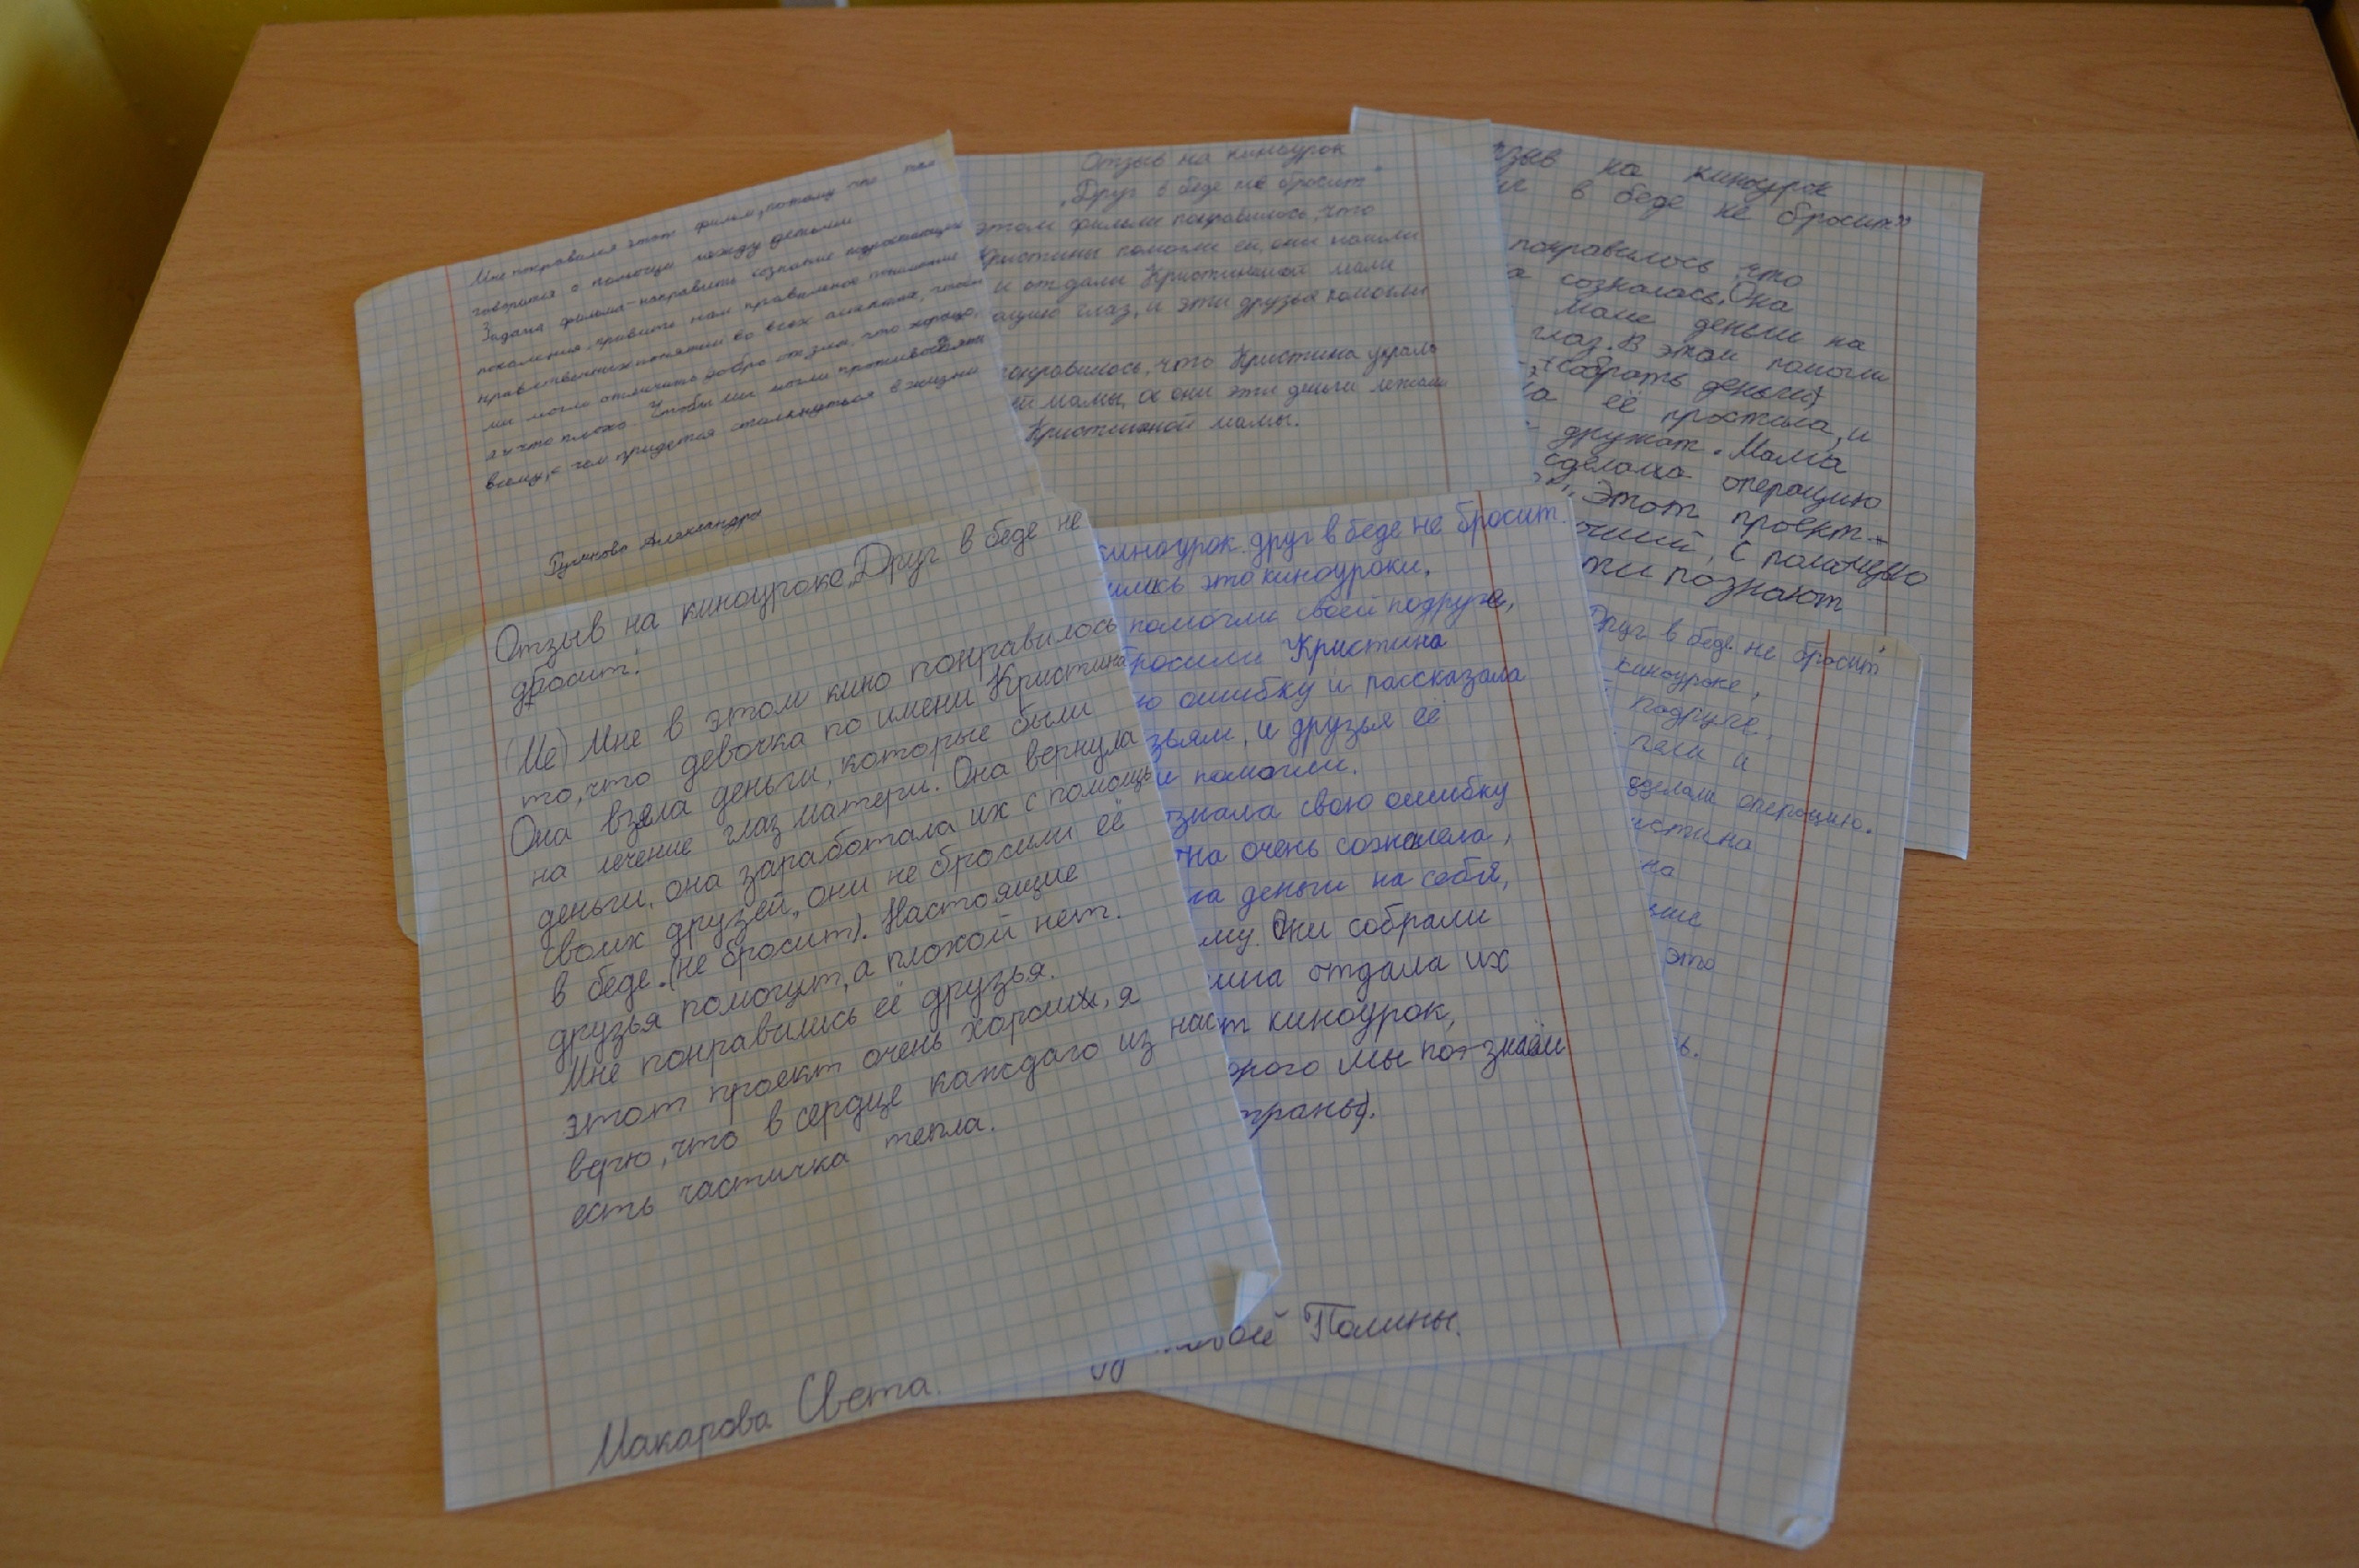 Мне понравился этот фильм, потому что там
говорится о помощи между детьми.
Задача фильма - направить сознание подростающих
поколения, привить нам правильное понятие
нравственных понятий во всех аспектах, чтобы
мы могли отличить добро от зла, что хорошо,
а и что плохо. Чтобы мы могли противостоять
всему, с чем придется столкнуться в жизни
Александра
Отзыв на киноурок
„Друг в беде не бросит"
этом фильме понравилось, что
Кристины помогли ей, они нашли
и отдали Кристининой маме
ацию глаз, и эти друзья помогли
онравилось, что Кристина украла
ей мамы, а они эти деньги лежали
Кристининой мамы.
зыв на киноурок
в беде не бросит"
понравилось что
созналась. Она
маме деньги на
глаз. В этом помогли
собрать деньги
её простила, и
дружат. Мама
сделала операцию
Этот проект-
с помощью
ти познают
Отзыв на киноуроке „Друг в беде не
дросит."
(Ме) Мне в этом кино понравилось
то, что девочка по имени Кристина
Она взяла деньги, которые были
на лечение глаз матери. Она вернула
деньги, она заработала их с помощь
своих друзей, они не бросили её
в беде. (не бросит). Настоящие
друзья помогут, а плохой нет.
Мне понравились её друзья.
этот проект очень хороших, я
верю, что в сердце каждаго из нас
есть частичка тепла.
Макарова Света.
киноурок. друг в беде не бросит.
ились это киноуроки.
помогли своей подруге,
бросили Кристина
ю ошибку и рассказала
зьям, и друзья её
и помогли.
знала свою ошибку
на очень сожалела,
ла деньги на себя,
му. Они собрали
ина отдала их
т киноурок,
орого мы по-знаём
траны).
вой Полины.
Друг в беде не бросит"
киноуроке,
подруге,
пели и
сделали операцию.
истина
на
шие
это
ь.